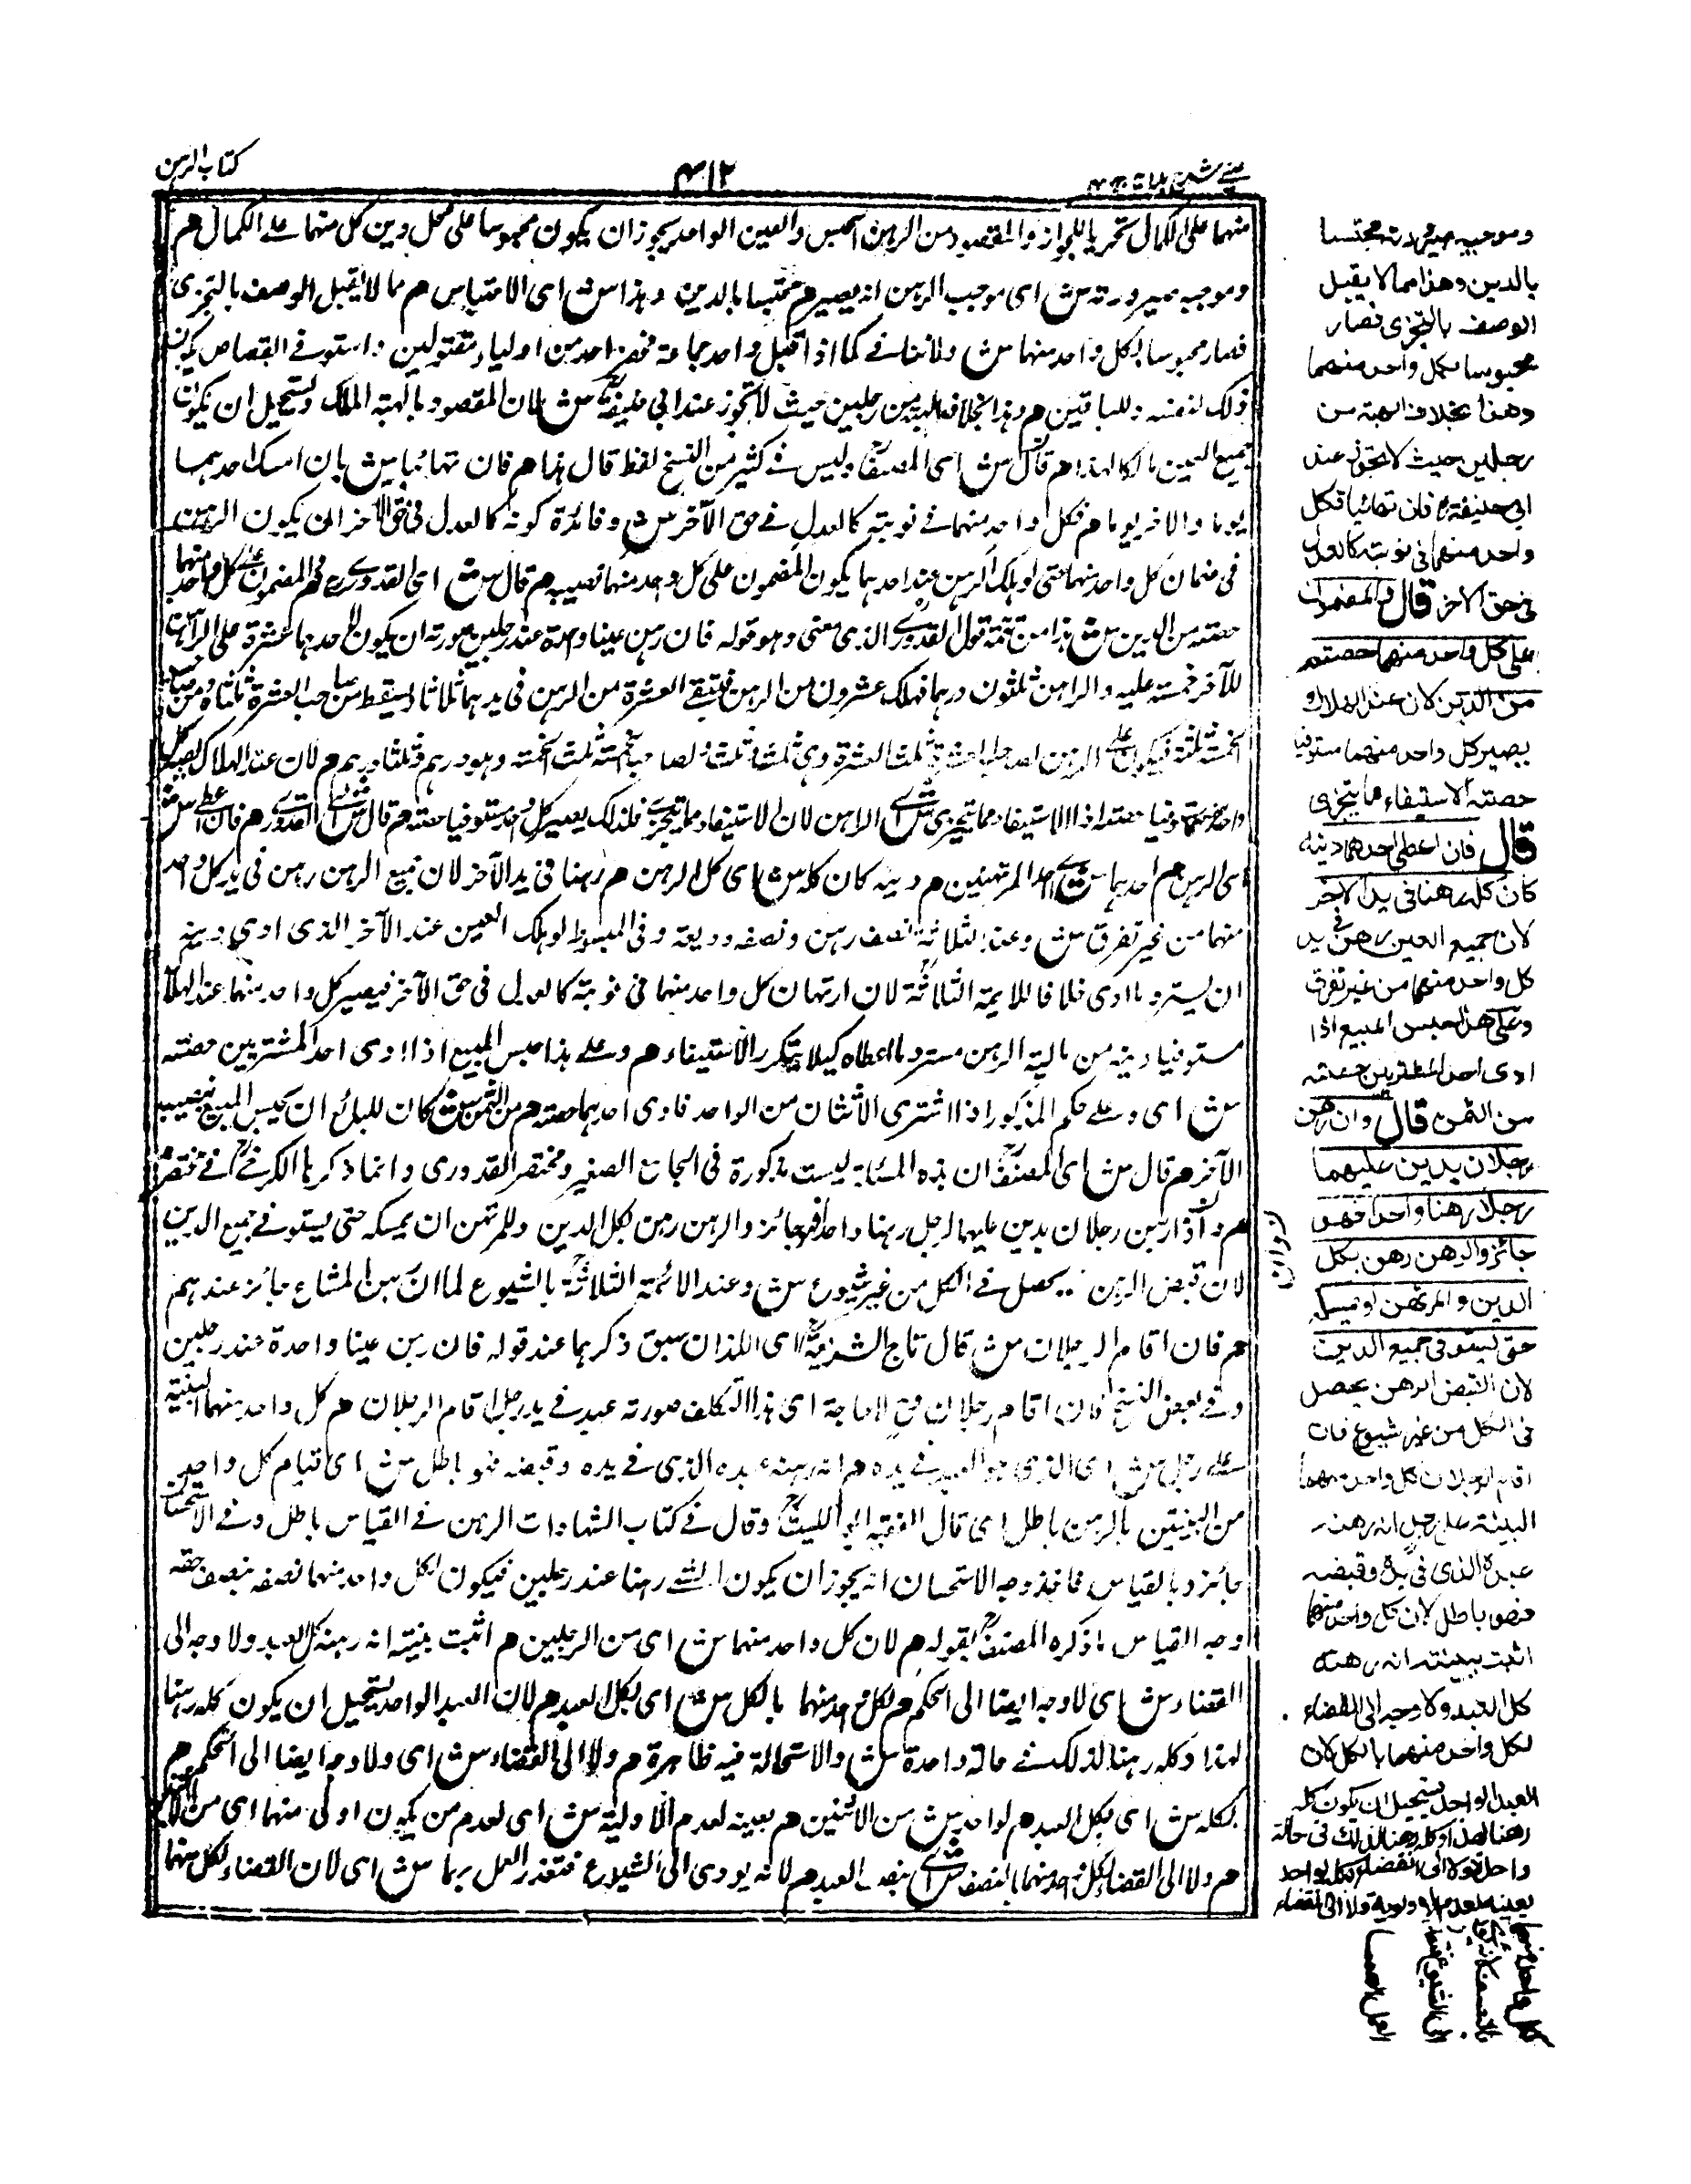 كتاب الرهن
٤١٢
عينى شرح هداية ج ٤
منهما على الكمال تحريا للجواز والمقصود من الرهن الحبس والعين الواحد يجوز ان يكون محبوسا على كل دين كل منهما على الكمال هم
وموجبه صيرورته مش اى موجب الرهن انه يصير هم محتبسا بالدين وهذا مش اى الاحتباس هم مما لا يقبل الوصف بالتجزى
فصار محبوسا بكل واحد منهما مش ولا تنافى كما اذا قتل واحد جماعة فحضر احد من اولياء مقتولين واستوفى القصاص يكون
ذلك لنفسه وللباقين هم وهذا بخلاف الهبة من رجلين حيث لا تجوز عند ابى حنيفة مش لان المقصود بالهبة الملك ويستحيل ان يكون
جميع العين ملكا لهذا هم قال مش اى المصنف وليس فى كثير من النسخ لفظ قال هذا هم فان تهائيا مش بان امسك احدهما
يوما والآخر يوما هم فكل واحد منهما فى نوبته كالعدل فى حق الآخر مش وفائدة كونه كالعدل فى حق الآخر ان يكون الرهن
فى ضمان كل واحد منهما حتى لو هلك الرهن عند احدهما يكون المضمون على كل واحد منهما نصيبه هم قال مش اى القدورى هم والمضمون على كل واحد منهما
حصته من الدين مش هذا من تتمة قول القدورى الذى مضى وهو قوله فان رهن عينا واحدة عند رجلين صورته ان يكون لاحدهما عشرة على الراهن
للآخر خمسة عليه والراهن ثلثون درهما فهلك عشرون من الرهن فتبقى العشرة من الرهن فى يدهما اثلاثا
لان عند الهلاك يصير كل
واحد منهما مستوفيا حصته اذ الاستيفاء مما يتجزى
اى الرهن هم احدهما مش اى احد المرتهنين هم دينه كان كله مش اى كل الرهن هم رهنا فى يد الآخر لان جميع الرهن رهن فى يد كل واحد
منهما من غير تفرق مش وعند الثلاثة نصف رهن ونصفه وديعة وفى المبسوط لو هلك العين عند الآخر الذى ادى دينه
ان يسترد ما ادى خلافا للائمة الثلاثة لان ارتهان كل واحد منهما فى نوبته كالعدل فى حق الآخر فيصير كل واحد منهما عند الهلاك
مستوفيا دينه من مالية الرهن مسترد ما اعطاه كيلا يتكرر الاستيفاء هم وعلى هذا حبس المبيع اذا ادى احد المشتريين حصته
مش اى وعلى حكم المذكور اذا اشترى الاثنان من الواحد فادى احدهما حصته هم من الثمن مش كان للبائع ان يحبس المبيع بنصيب
الآخر هم قال مش اى المصنف ان هذه المسئلة ليست مذكورة فى الجامع الصغير ومختصر القدورى وانما ذكرها الكرخى فى مختصره
هم واذا رهن رجلان بدين عليهما لرجل رهنا واحدا فهو جائز والرهن رهن بكل الدين وللمرتهن ان يمسكه حتى يستوفى جميع الدين
لان قبض الرهن يحصل فى الكل من غير شيوع مش وعند الائمة الثلاثة بالشيوع لما ان رهن المشاع جائز عندهم
هم فان اقام الرجلان مش قال تاج الشريعة اى اللذان سبق ذكرهما عند قوله فان رهن عينا واحدة عند رجلين
وفى بعض النسخ فان اقام رجلان فح لا حاجة الى هذا التكلف صورته عبد فى يد رجل اقام الرجلان هم كل واحد منهما البينة
على رجل مش اى الذى هو العبد فى يده هم انه رهنه عبده الذى فى يده وقبضه فهو باطل مش اى قيام كل واحد
من البينتين بالرهن باطل اى قال الفقيه ابو الليث وقال فى كتاب الشهادات الرهن فى القياس باطل وفى الاستحسان
جائز وبالقياس ناخذ وجه الاستحسان انه يجوز ان يكون الشئ رهنا عند رجلين فيكون لكل واحد منهما نصفه بنصف حقه
وجه القياس ما ذكره المصنف بقوله هم لان كل واحد منهما مش اى من الرجلين هم اثبت ببينته انه رهنه كل العبد ولا وجه الى
القضاء مش اى لا وجه ايضا الى الحكم هم لكل واحد منهما بالكل مش اى بكل العبد هم لان العبد الواحد يستحيل ان يكون كله رهنا
لهذا وكله رهنا لذلك فى حالة واحدة مش والاستحالة فيه ظاهرة هم ولا الى القضاء مش اى ولا وجه ايضا الى الحكم هم
بكله مش اى بكل العبد هم لواحد مش من الاثنين هم بعينه لعدم الاولية مش اى لعدم من يكون اولى منهما اى من الاثنين
هم ولا الى القضاء لكل واحد منهما بالنصف مش اى بنصف العبد هم لانه يودى الى الشيوع فتعذر العمل بهما مش اى لان القضاء لكل منهما
وموجبه صيرورته محتبسا
بالدين وهذا مما لا يقبل
الوصف بالتجزى فصار
محبوسا بكل واحد منهما
وهذا بخلاف الهبة من
رجلين حيث لا تجوز عند
ابى حنيفة رح فان تهائيا فكل
واحد منهما فى نوبته كالعدل
فى حق الآخر قال والمضمون
على كل واحد منهما حصته
من الدين لان عند الهلاك
يصير كل واحد منهما مستوفيا
حصته اذ الاستيفاء مما يتجزى
قال فان اعطى احدهما دينه
كان كله رهنا فى يد الآخر
لان جميع العين رهن فى يد
كل واحد منهما من غير تفرق
وعلى هذا حبس المبيع اذا
ادى احد المشتريين حصته
من الثمن قال وان رهن
رجلان بدين عليهما
رجلا رهنا واحدا فهو
جائز والرهن رهن بكل
الدين وللمرتهن ان يمسكه
حتى يستوفى جميع الدين
لان القبض الرهن يحصل
فى الكل من غير شيوع فان
اقام الرجلان كل واحد منهما
البينة على رجل انه رهنه
عبده الذى فى يده وقبضه
فهو باطل لان كل واحد منهما
اثبت ببينته انه رهنه
كل العبد ولا وجه الى القضاء
لكل واحد منهما بالكل لان
العبد الواحد يستحيل ان يكون كله
رهنا لهذا وكله رهنا لذلك فى حالة
واحدة ولا الى القضاء بكله لواحد
بعينه لعدم الاولوية ولا الى القضاء
لكل واحد منهما
بالنصف لانه